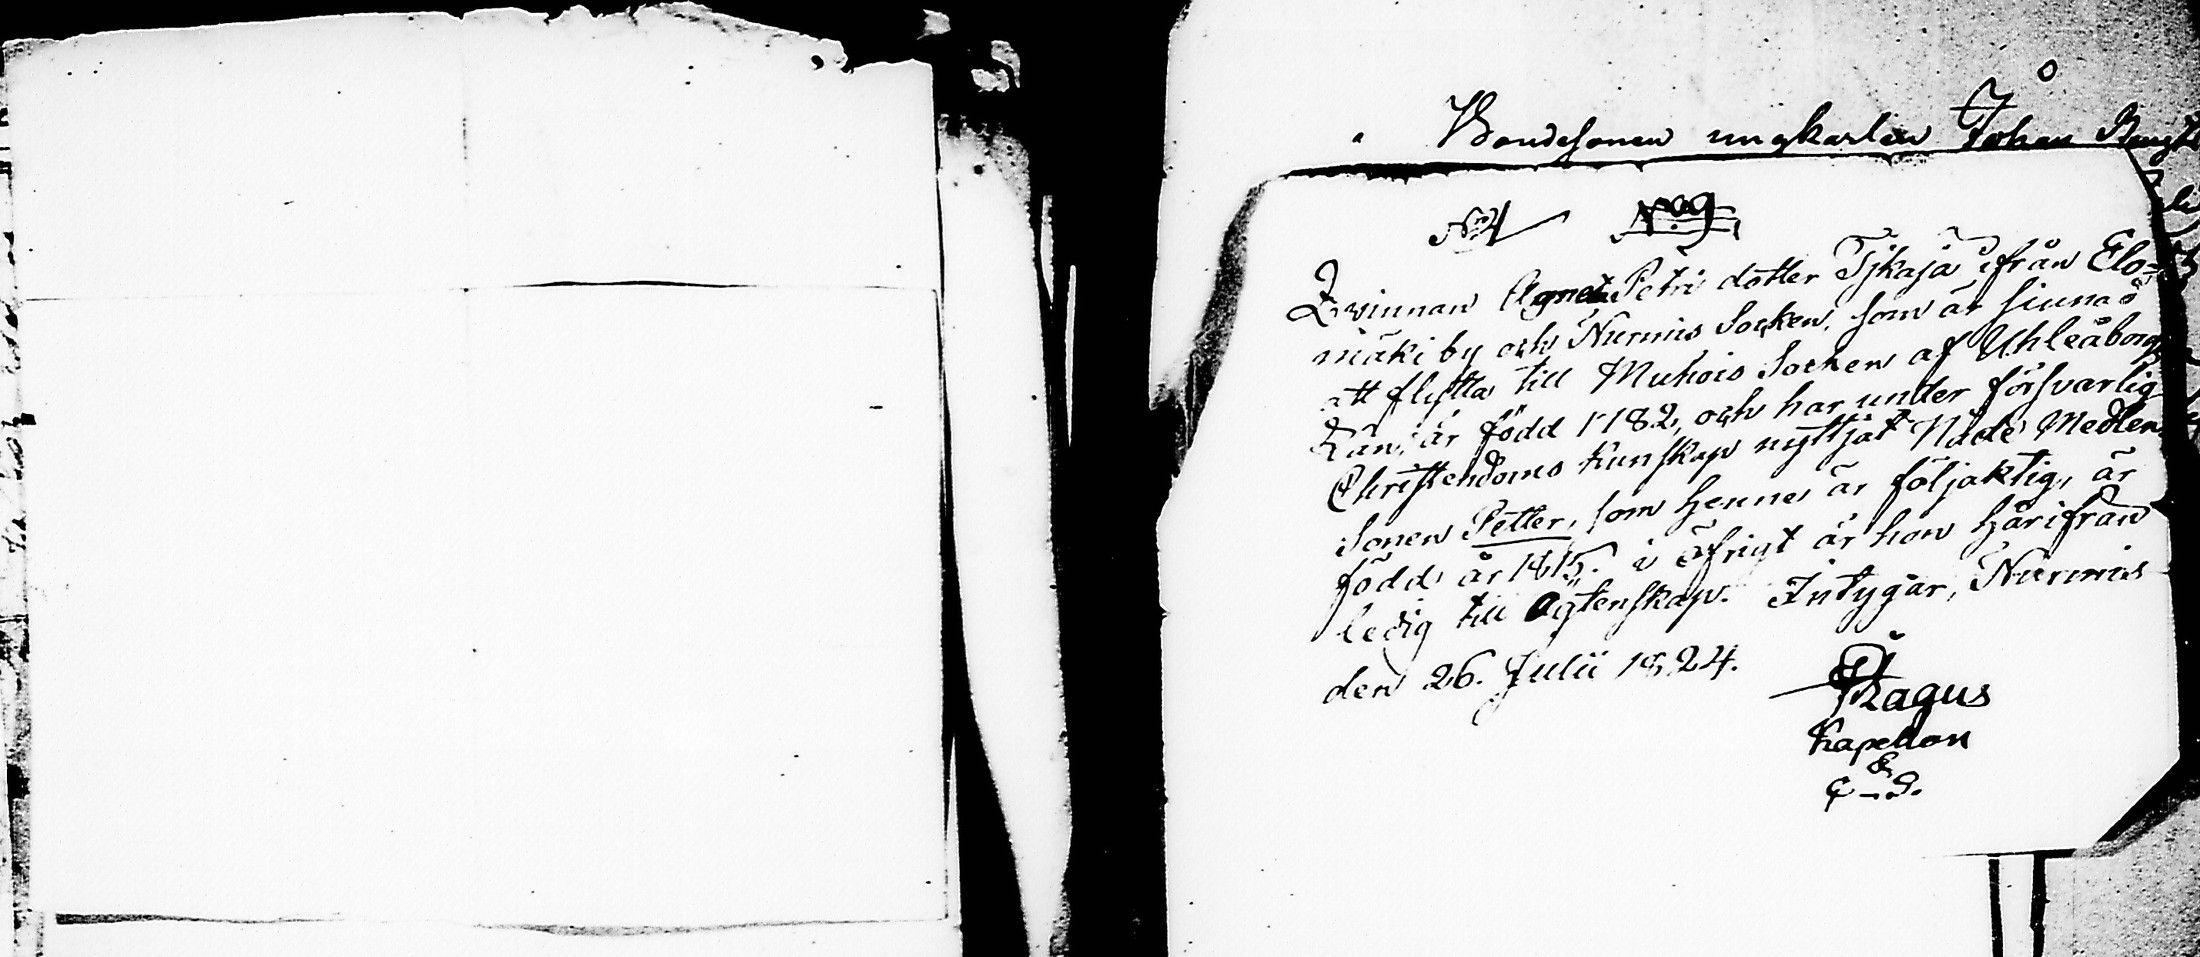 Bondesonen ungkarlen Johan Bengts
No 4 No 9
Qvinnan Agneta Petri dotter Tjkaja ifrån Elo-
mäki by och Nurmis Socken, som är sinnad
att flytta till Muhois Socken af Uhleåborgs
Län, är född 1782, och har under försvarlig
Christendoms kunskap nyttjat Nåde Medlen.
Sonen Petter, som henne är följaktig, är
född år 1815. i öfrigt är hon härifrån
ledig till Ägtenskap. Intygar, Nurmis
den 26. Julii 1824.
Ragus
Kapellan